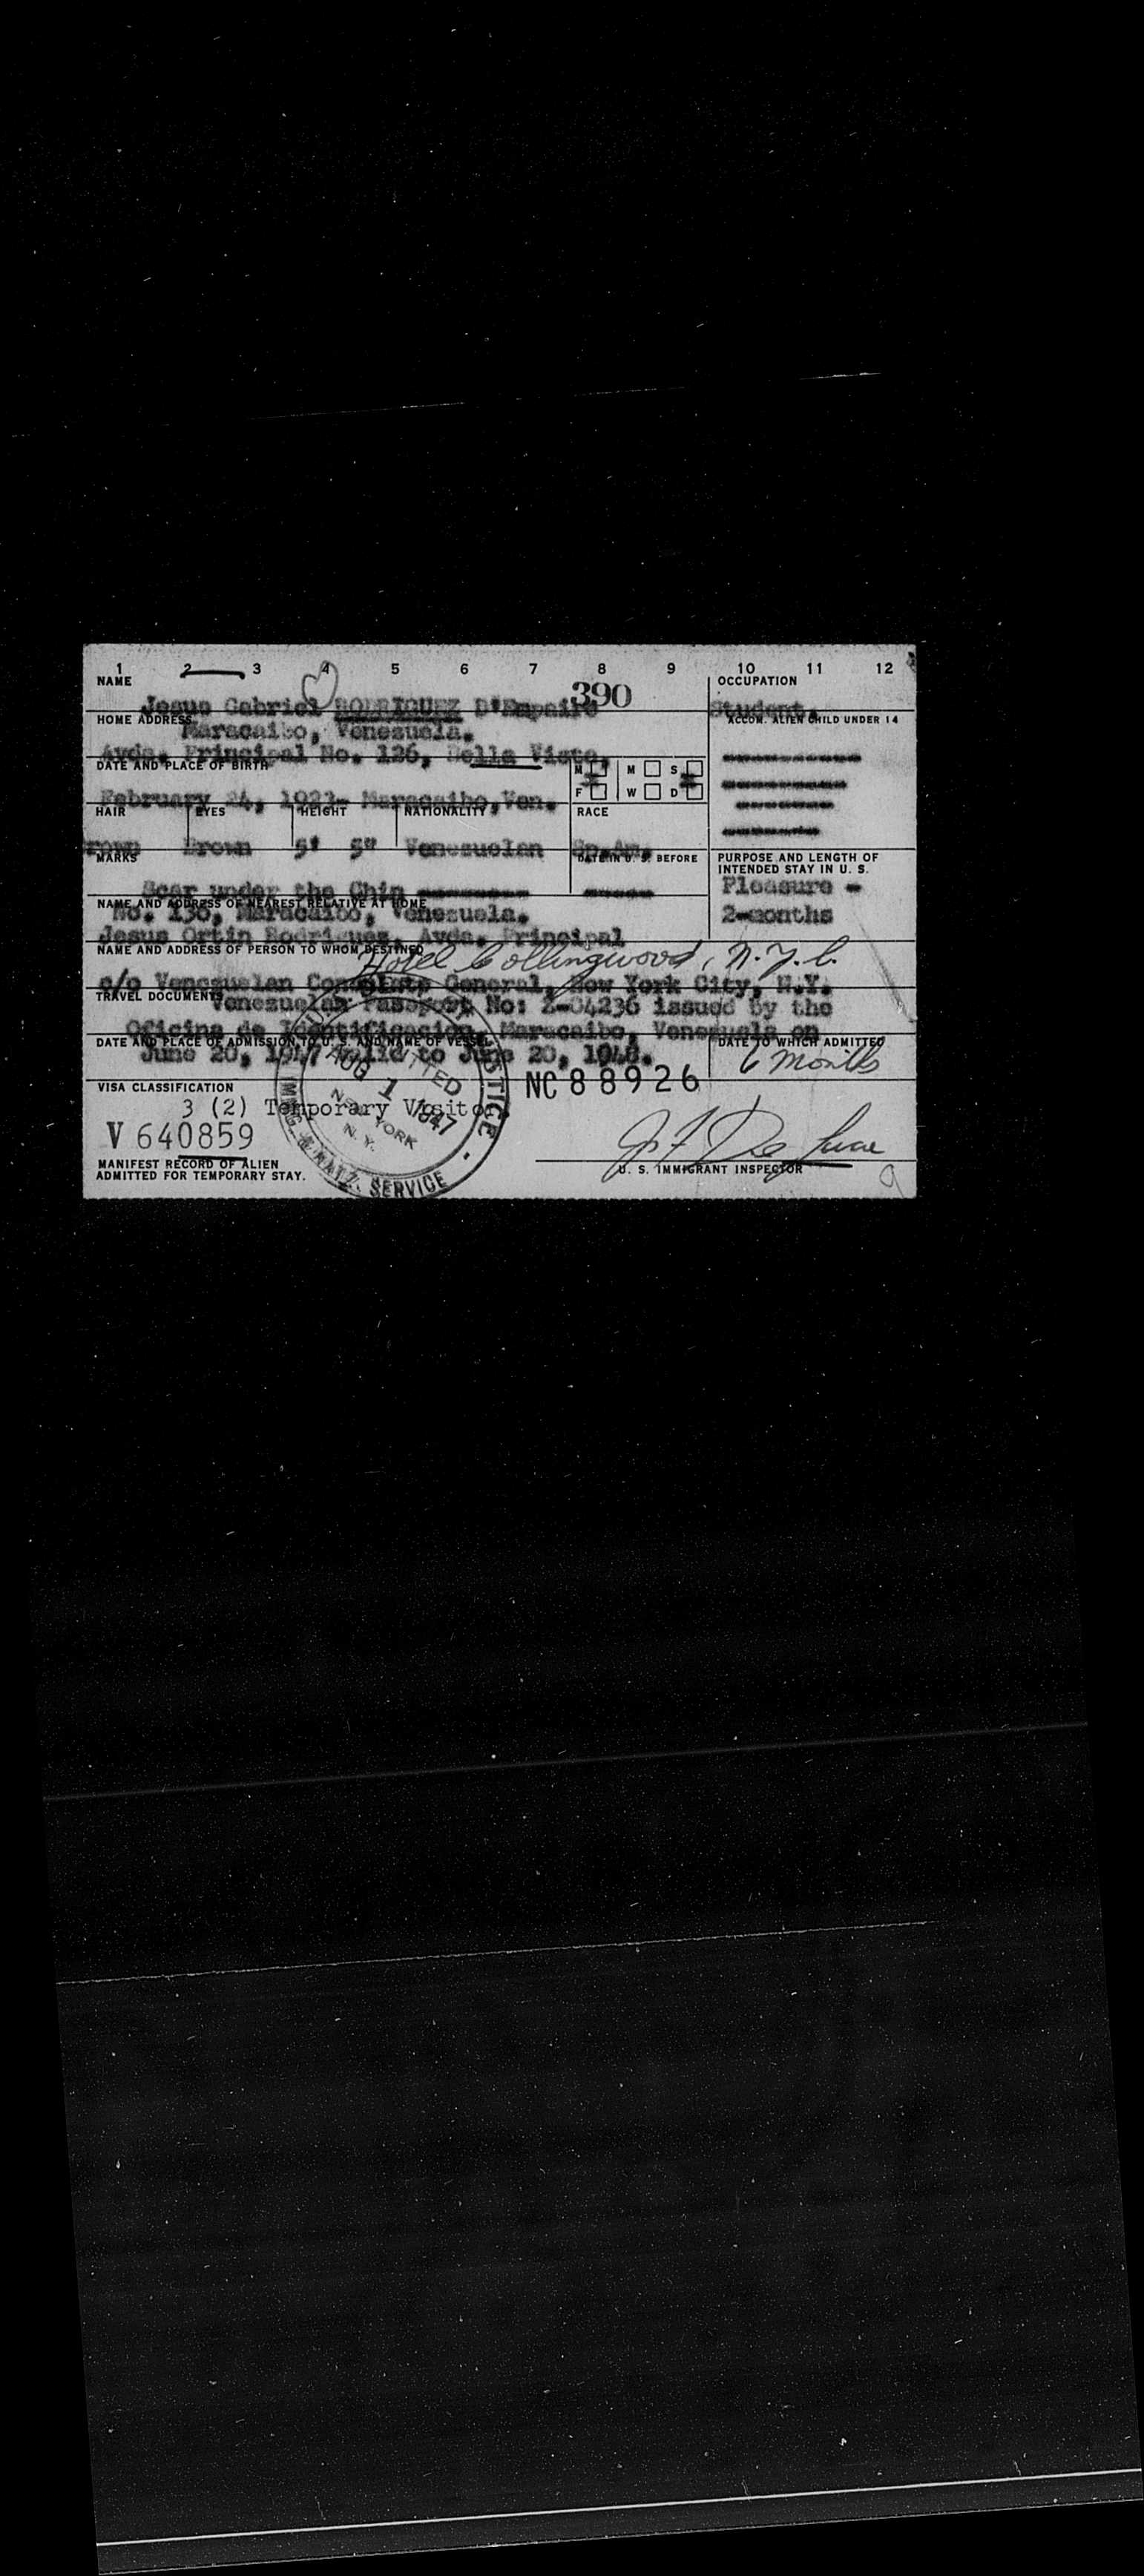 1 2 3 4 5 6 7 8 9 10 11 12
NAME
OCCUPATION
390
Jesus Gabriel RODRIGUEZ D'Empaire
Student.
HOME ADDRESS
ACCOM. ALIEN CHILD UNDER 14
Maracaibo, Venezuela.
Avda. Principal No. 126, Bella Vista,
DATE AND PLACE OF BIRTH
M M S
F W D
February 24, Maracaibo, Ven.
HAIR EYES HEIGHT NATIONALITY RACE
Brown 5' 5" Venezuelan Sp.Am.
MARKS
DATE IN U. S. BEFORE
PURPOSE AND LENGTH OF
INTENDED STAY IN U. S.
Pleasure -
Scar under the Chin
NAME AND ADDRESS OF NEAREST RELATIVE AT HOME
No. 130, Maracaibo, Venezuela.
2-months
Jesus Ortin Rodriguez, Avda. Principal
NAME AND ADDRESS OF PERSON TO WHOM DESTINED
Hotel Collingwood, N.Y.C.
c/o Venezuelan Consulate General, New York City, N.Y.
TRAVEL DOCUMENTS
Venezuelan Passport No: issued by the
Oficina de Identificacion, Maracaibo, Venezuela on
DATE AND PLACE OF ADMISSION TO U. S. AND NAME OF VESSEL
DATE TO WHICH ADMITTED
June 20, 1947 valid to June 20, 1948.
6 Months
ADMITTED
AUG 1 1947
NEW YORK
N. Y.
IMMIG. & NATZ. SERVICE
NC 88926
VISA CLASSIFICATION
3 (2) Temporary Visitor.
V 640859
MANIFEST RECORD OF ALIEN
ADMITTED FOR TEMPORARY STAY.
U. S. IMMIGRANT INSPECTOR